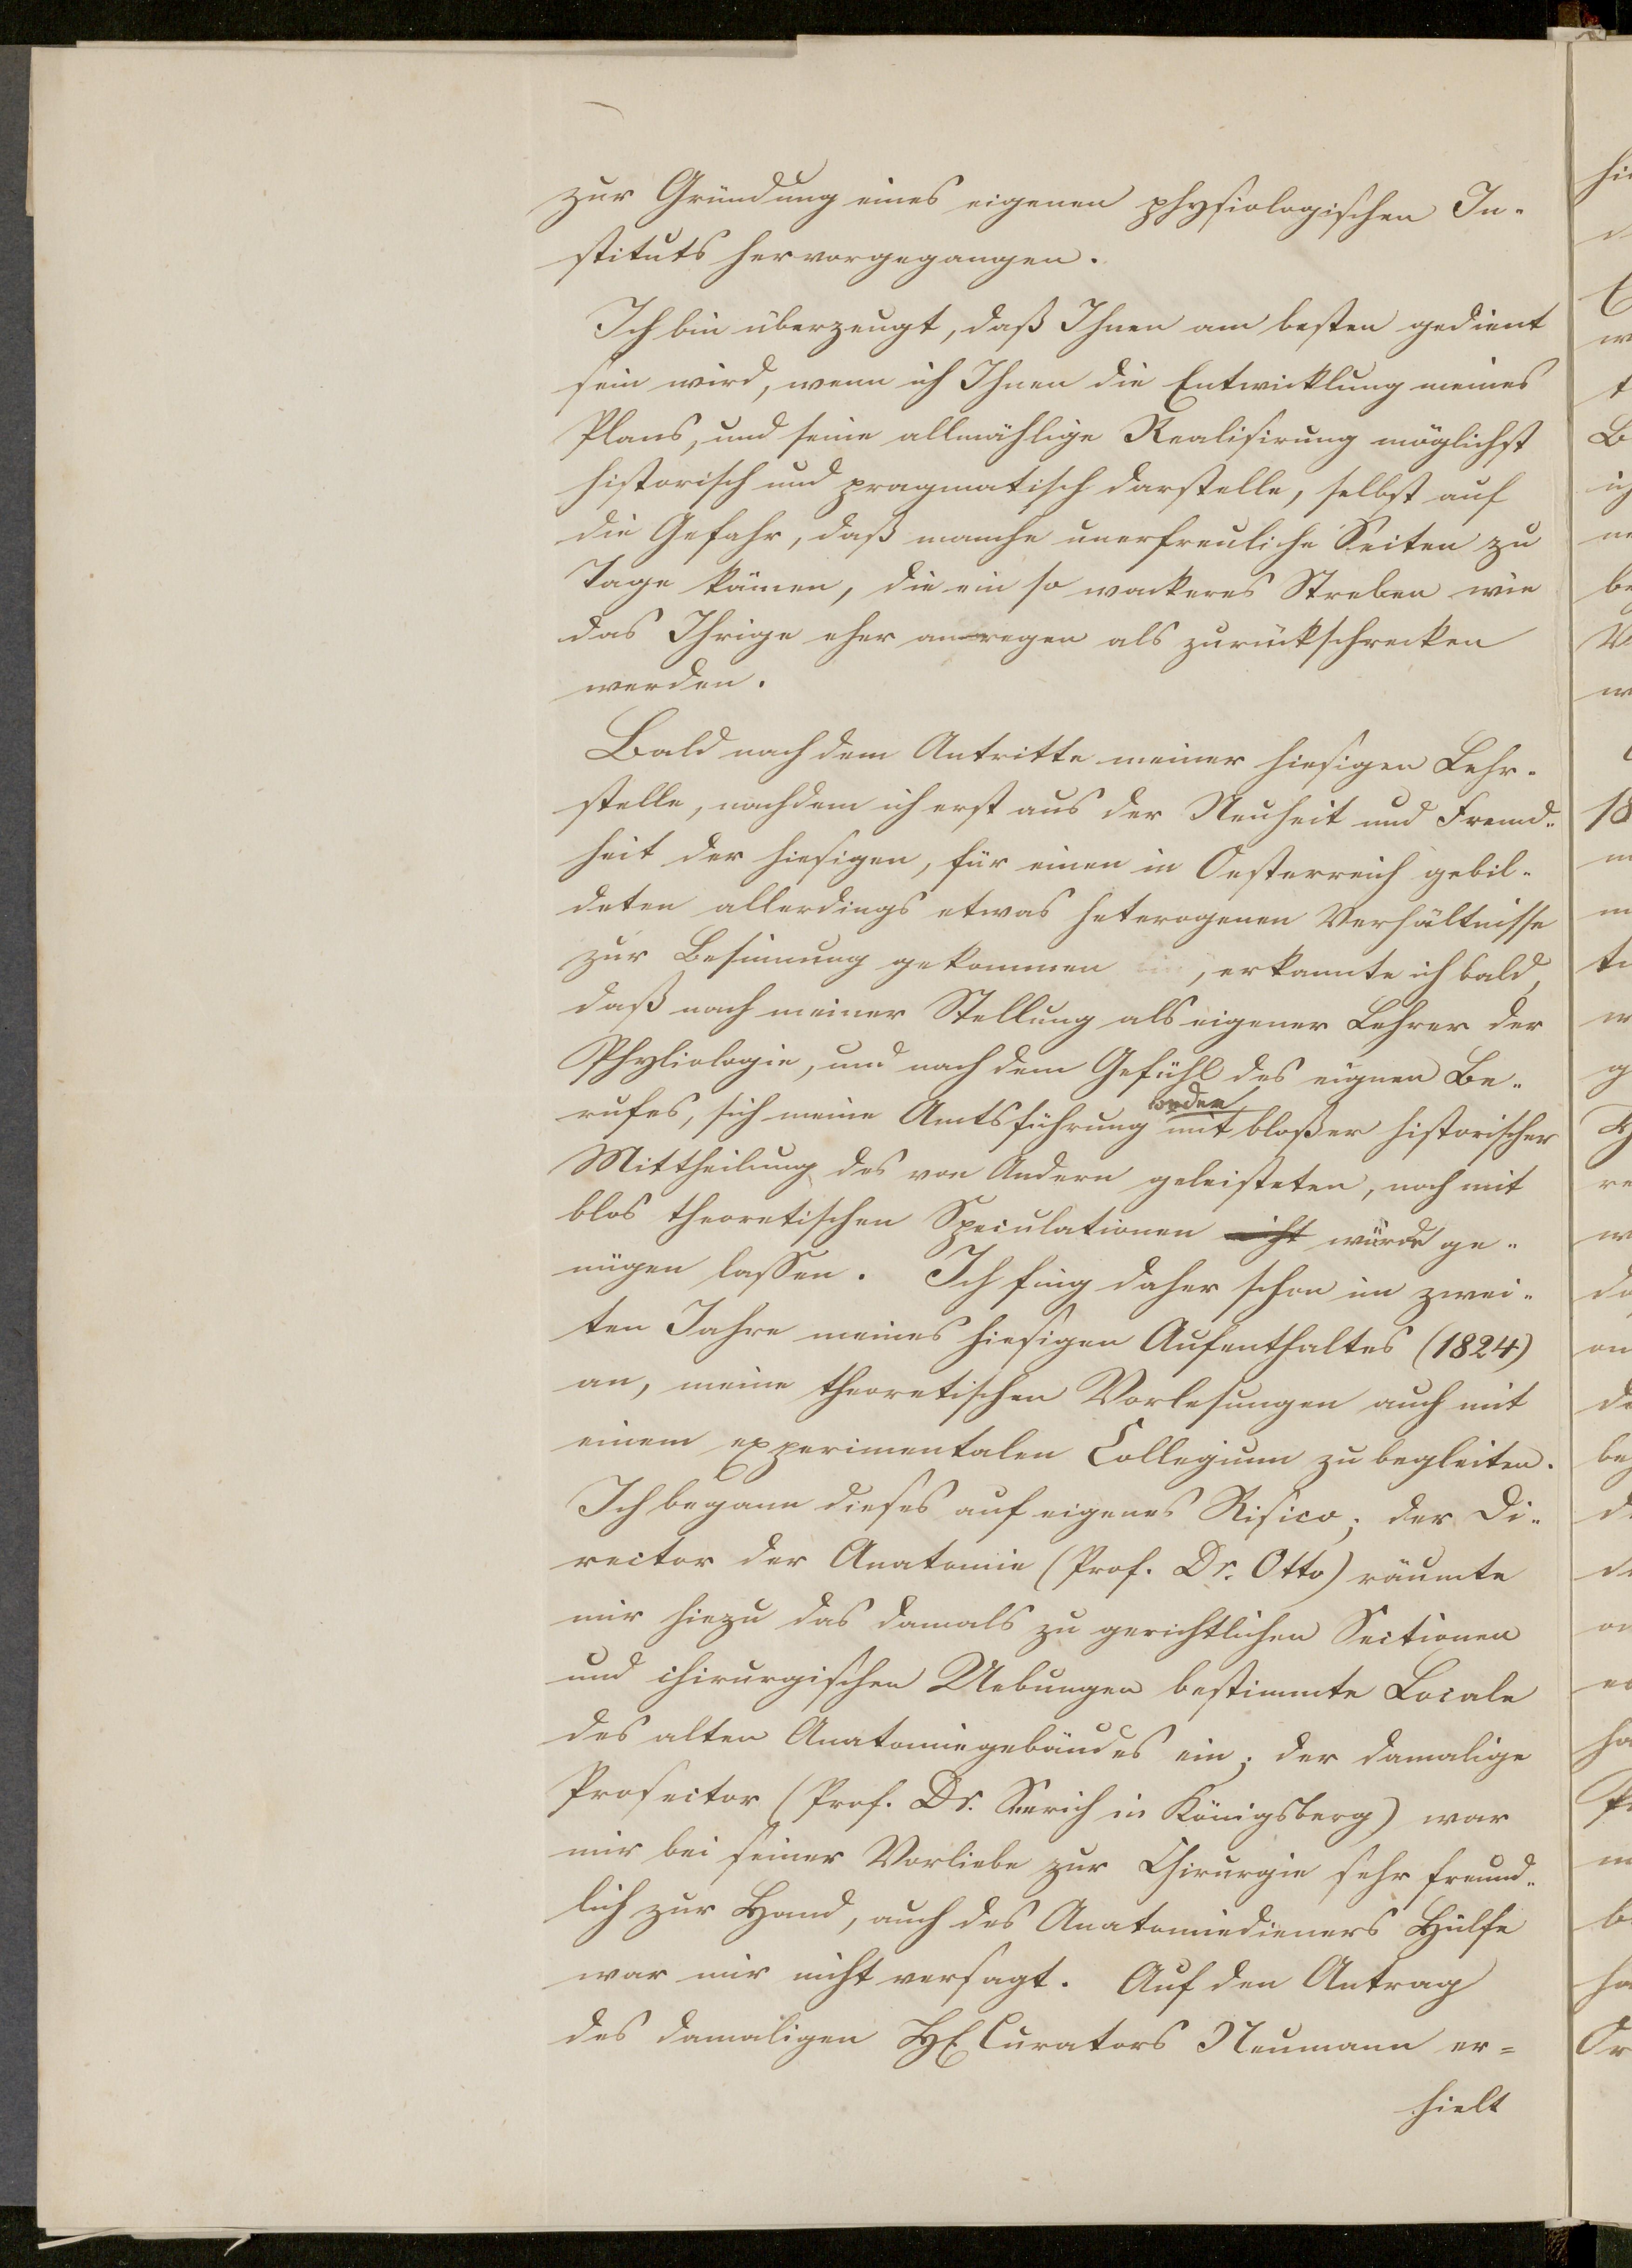 zur Gründung eines eigenen physiologischen In-
stituts hervorgegangen.
Ich bin überzeugt, daß Ihnen am besten gedient
sein wird, wenn ich Ihnen die Entwicklung meines
Plans, und seine allmählige Realisirung möglichst
historisch und pragmatisch darstelle, selbst auf
die Gefahr, daß manche unerfreuliche Seiten zu
Tage kämen, die ein so wackeres Streben wie
das Ihrige eher anregen als zurückschrecken
werden.
Bald nach dem Antritte meiner hiesigen Lehr-
stelle, nachdem ich erst aus der Neuheit und Fremd-
heit der hiesigen, für einen in Oesterreich gebil-
deten allerdings etwas heterogenen Verhältnisse
zur Besinnung gekommen bin, erkannte ich bald,
daß nach meiner Stellung als eigener Lehrer der
Phyliologie, und nach dem Gefühl des eignen Be-
rufes, sich meine Amtsführung weder mit bloßer historischer
Mittheilung des von Andern geleisteten, noch mit
blos theoretischen Speculationen nicht würde ge-
nügen lassen. Ich fing daher schon im zwei-
ten Jahre meines hiesigen Aufenthaltes (1824)
an, meine theoretischen Vorlesungen auch mit
einem experimentalen Collegium zu begleiten.
Ich begann dieses auf eigenes Risico; der Di-
rector der Anatomie (Prof. Dr. Otto) räumte
mir hiezu das damals zu gerichtlichen Sectionen
und chirurgischen Uebungen bestimmte Locale
des alten Anatomiegebäudes ein; der damalige
Prosector (Prof. Dr. Seerich in Königsberg) war
mir bei seiner Vorliebe zur Chirurgie sehr freund-
lich zur Hand, auch des Anatomiedieners Hülfe
war mir nicht versagt. Auf den Antrag
des damaligen H. Curators Neumann er=
hielt